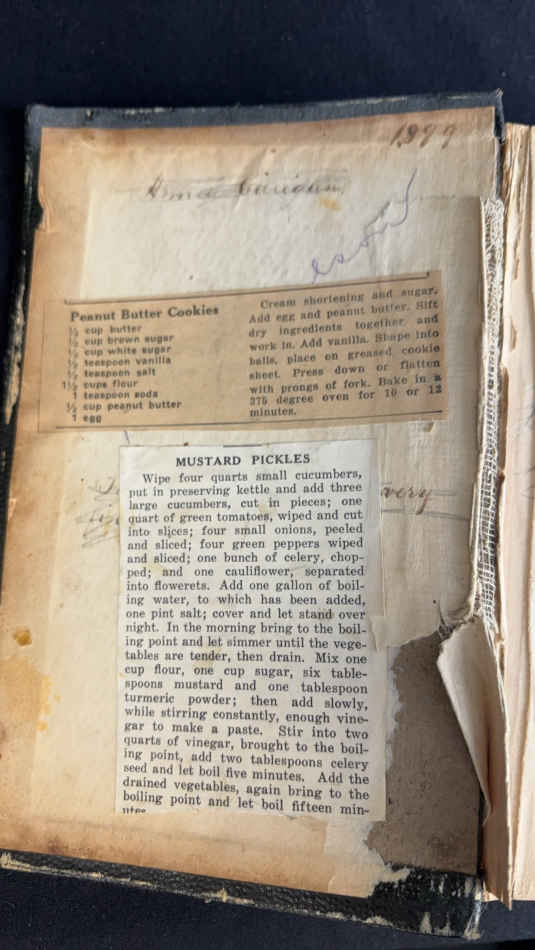 1899
Peanut Butter Cookies
½ cup butter
½ cup brown sugar
½ cup white sugar
½ teaspoon vanilla
½ teaspoon salt
1½ cups flour
1 teaspoon soda
½ cup peanut butter
1 egg
Cream shortening and sugar.
Add egg and peanut butter. Sift
dry ingredients together, and
work in. Add vanilla. Shape into
balls, place on greased cookie
sheet. Press down or flatten
with prongs of fork. Bake in a
375 degree oven for 10 or 12
minutes.
MUSTARD PICKLES
Wipe four quarts small cucumbers,
put in preserving kettle and add three
large cucumbers, cut in pieces; one
quart of green tomatoes, wiped and cut
into slices; four small onions, peeled
and sliced; four green peppers wiped
and sliced; one bunch of celery, chop-
ped; and one cauliflower, separated
into flowerets. Add one gallon of boil-
ing water, to which has been added,
one pint salt; cover and let stand over
night. In the morning bring to the boil-
ing point and let simmer until the vege-
tables are tender, then drain. Mix one
cup flour, one cup sugar, six table-
spoons mustard and one tablespoon
turmeric powder; then add slowly,
while stirring constantly, enough vine-
gar to make a paste. Stir into two
quarts of vinegar, brought to the boil-
ing point, add two tablespoons celery
seed and let boil five minutes. Add the
drained vegetables, again bring to the
boiling point and let boil fifteen min-
utes